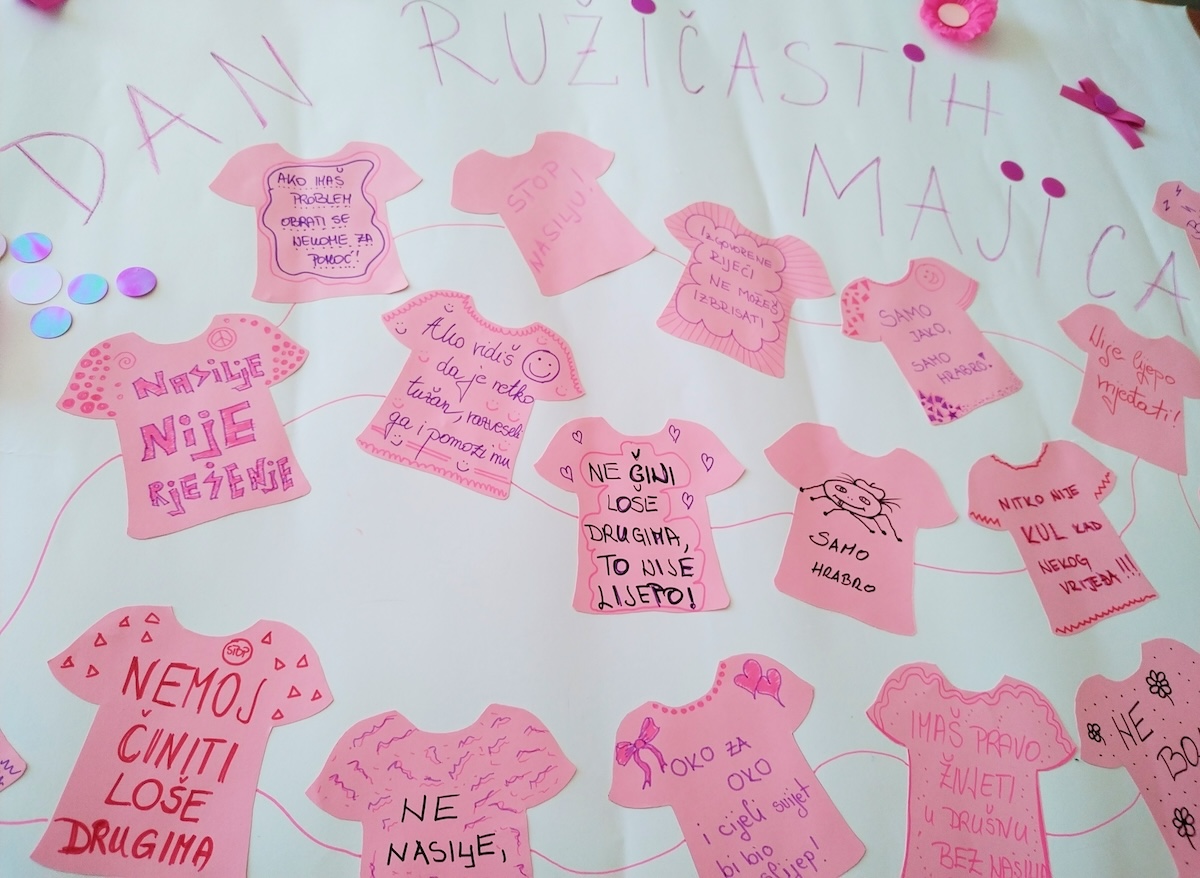 DAN RUŽIČASTIH
MAJICA
AKO IMAŠ
PROBLEM
OBRATI SE
NEKOME ZA
POMOĆ!
STOP
NASILJU!
IZGOVORENE
RIJEČI
NE MOŽEŠ
IZBRISATI
SAMO
JAKO,
SAMO
HRABRO!
Nije lijepo
vrijeđati!
NASILJE
NIJE
RJEŠENJE
Ako vidiš
da je netko
tužan, razveseli
ga i pomozi mu
NE ČINI
LOŠE
DRUGIMA,
TO NIJE
LIJEPO!
SAMO
HRABRO
NITKO NIJE
KUL KAD
NEKOG
VRIJEĐA!!!
STOP
NEMOJ
ČINITI
LOŠE
DRUGIMA
NE
NASILJE,
OKO ZA
OKO
i cijeli svijet
bi bio
slijep!
IMAŠ PRAVO
ŽIVJETI
U DRUŠTVU
BEZ NASILJA
NE